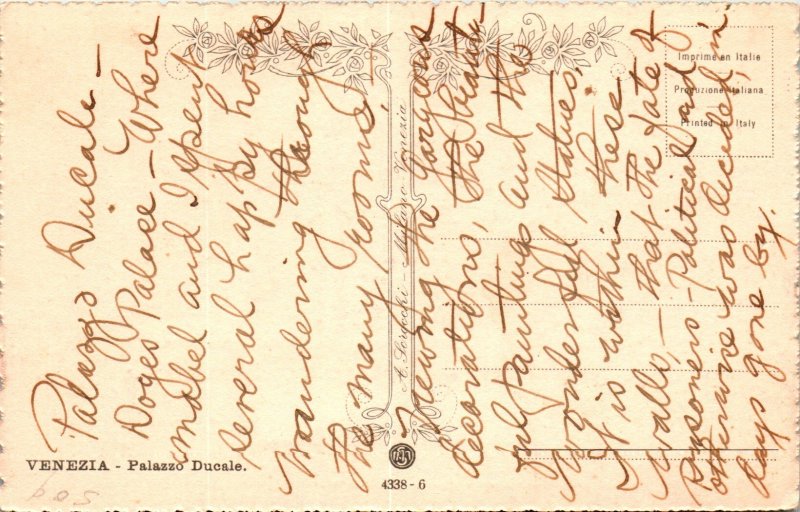 Palazzo Ducale –
Doges Palace – Where
Mabel and I spent
several happy hours
wandering through
the many rooms,
viewing the gorgeous
decorations, the beauti-
ful paintings and the
wonderful statues,
It is within these
walls, – that the fate of
Prisoners – Political and
otherwise was decided, in
days gone by.
Imprimé en Italie
Produzione Italiana
Printed in Italy
A. Scrocchi - Milano - Venezia
VENEZIA - Palazzo Ducale.
4338 - 6